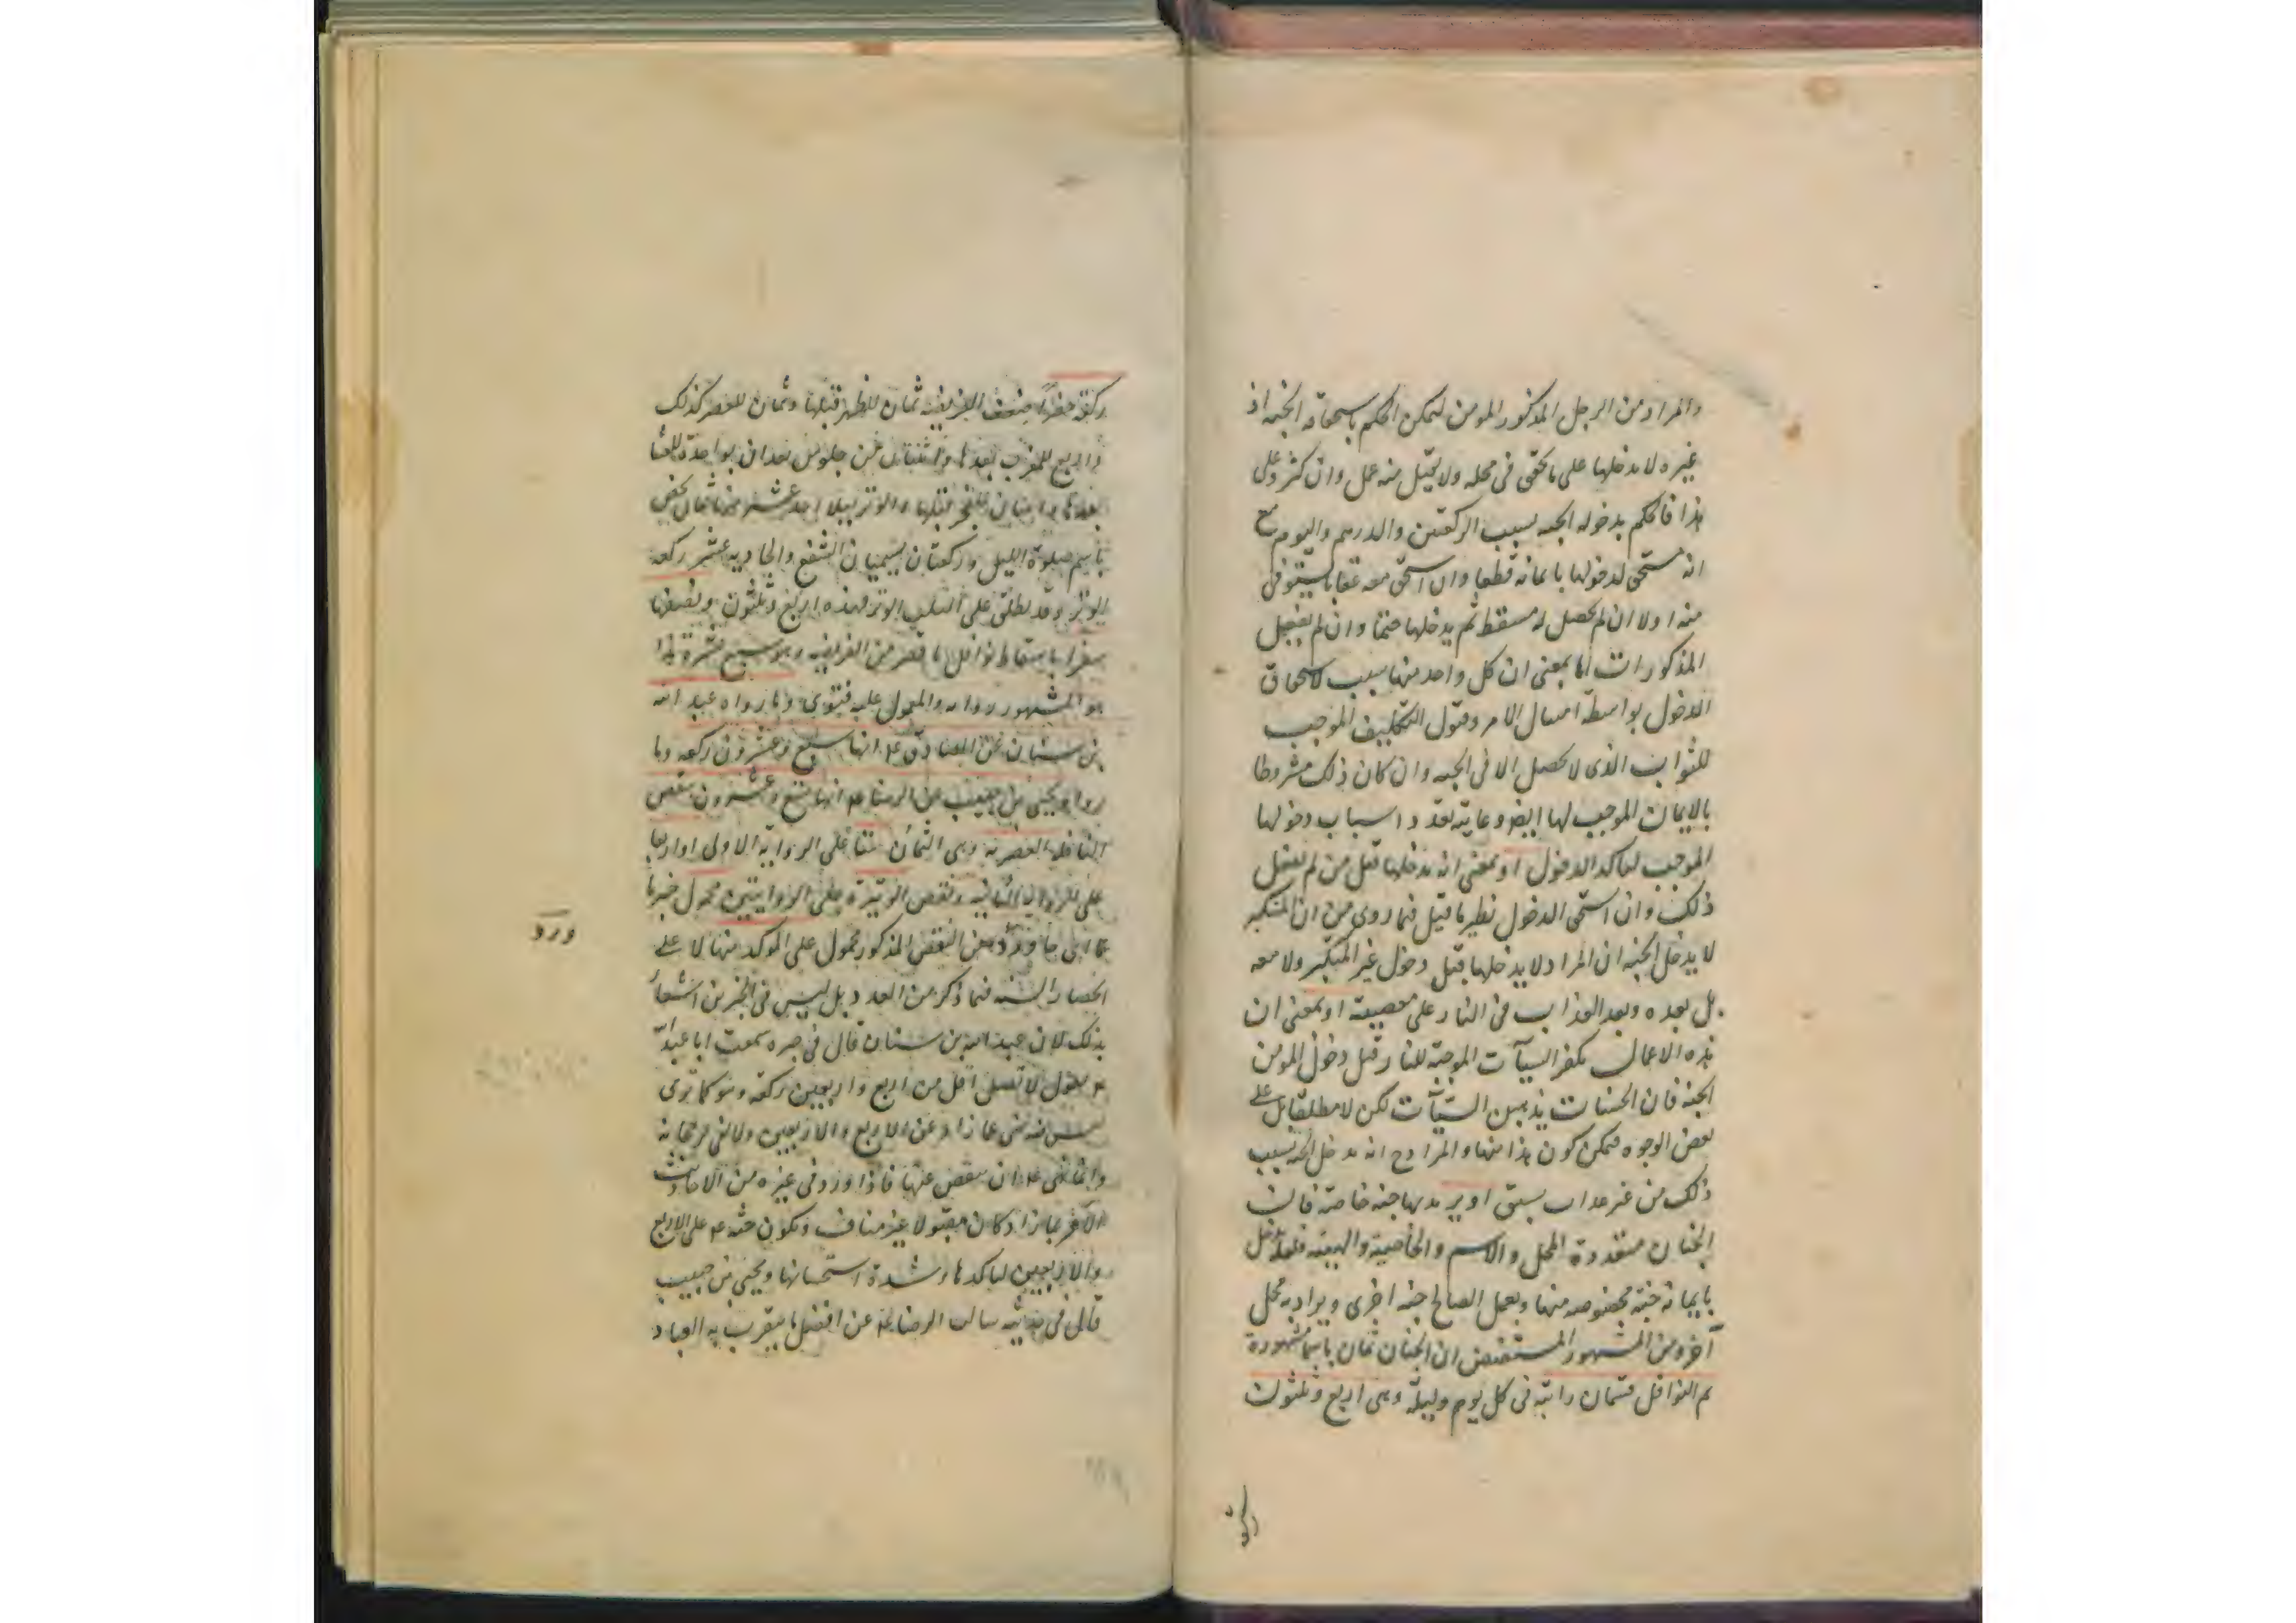 والمراد من الرجل المذكور المومن ليمكن الحكم باستحقاقه الجنه اذ
غيره لا يدخلها على ما تحقق فى محله ولا يقبل منه عمل وان كثر وعلى
هذا فالحكم بدخوله الجنه بسبب الركعتين والدرهم واليوم مع
انه مستحق لدخولها بايمانه قطعا وان استحق معه عقابا يستوفى
منه اولا ان لم يحصل له مسقط ثم يدخلها حتما وان لم يفعل
المذكورات اما بمعنى ان كل واحد منها سبب لاستحقاق
الدخول بواسطة امتثال الامر وقبول التكليف الموجب
للثواب الذى لا يحصل الا فى الجنه وان كان ذلك مشروطا
بالايمان الموجب لها ايضا وغايته تعدد اسباب دخولها
الموجب لتاكد الدخول او بمعنى انه يدخلها قبل من لم يفعل
ذلك وان استحق الدخول نظير ما قيل فيما روى من ان المتكبر
لا يدخل الجنه ان المراد لا يدخلها قبل دخول غير المتكبر ولا معه
بل بعده وبعد العذاب فى النار على معصيته او بمعنى ان
هذه الاعمال تكفر السيآت الموجبة للنار قبل دخول المومن
الجنه فان الحسنات يذهبن السيآت لكن لا مطلقا بل على
بعض الوجوه فيمكن كون هذا منها والمراد ح انه يدخل الجنة بسبب
ذلك من غير عذاب سبق او يريد بها جنه خاصة فان
الجنان متعددة المحل والاسم والخاصية والهيئه فلعله يدخل
بايمانه جنة مخصوصه منها وبعمل الصالح جنه اخرى ويراد به محل
آخر ومن المشهور المستفيض ان الجنان ثمان باسما مشهورة
ثم النوافل قسمان راتبة فى كل يوم وليلة وهى اربع وثلثون
ركعة
ركعة حضرا ضعف الفريضه ثمان للظهر قبلها وثمان للعصر كذلك
واربع للمغرب بعدها واثنتان من جلوس تعدان بواحدة للعشا
بعدها واثنتان للفجر قبلها والوتر ليلا احد عشر منها ثمان تختص
باسم صلوة الليل وركعتان يسميان الشفع والحاديه عشر ركعه
الوتر وقد يطلق على الثلث الوتر فهذه اربع وثلثون وبنصفها
سفرا باسقاط نوافل ما قصر من الفرايض وهو سبع عشرة هذا
هو المشهور روايه والمعول عليه فتوى وما رواه عبد الله
بن سنان عن الصادق ع انها سبع وعشرون ركعه وما
رواه يحيى بن حبيب عن الرضا ع انها تسع وعشرون بنقص
النافله العصريه وهى الثمان ستا على الرواية الاولى او اربعا
على الرواية الثانيه ونقص الوتيرة على الروايتين محمول خبرها
ورد
الحصار السنه فيما ذكر من العدد بل ليس فى الخبرين اشعار
بذلك لان عبد الله بن سنان قال فى خبره سمعت ابا عبد الله
ع يقول لا تصل اقل من اربع واربعين ركعه وهو كما ترى
ليس فيه نفى عما زاد عن الاربع والاربعين ولا نفى رجحانه
وانما نهى ع ان ينقص عنها فاذا ورد فى غيره من الاحاديث
الآخر ما زاد كان مقبولا غير مناف ويكون حثه ع على الاربع
والاربعين لتاكدها وشدة استحبابها ويحيى بن حبيب
قال فى حديثه سالت الرضا ع عن افضل ما يتقرب به العباد